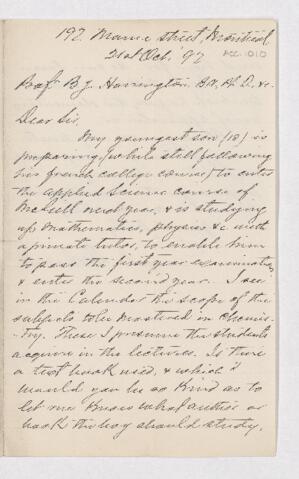 192 Mance street, Montreal
21st Oct. 97
ACC. 1010
Prof. B. J. Harrington, BA, Ph. D. &c.
Dear Sir,
My youngest son (18) is
preparing (while still following
his french college course) to enter
the applied Science course of
McGill next year, & is studying
up Mathematics, physics &c with
a private tutor, to enable him
to pass the first year examination
& enter the second year. I see
in the Calendar the scope of the
subjects to be mastered in Chemis-
-try. These I presume the students
acquire in the lectures. Is there
a text book used, & which?
Would you be so kind as to
let me know what author or
book the boy should study,